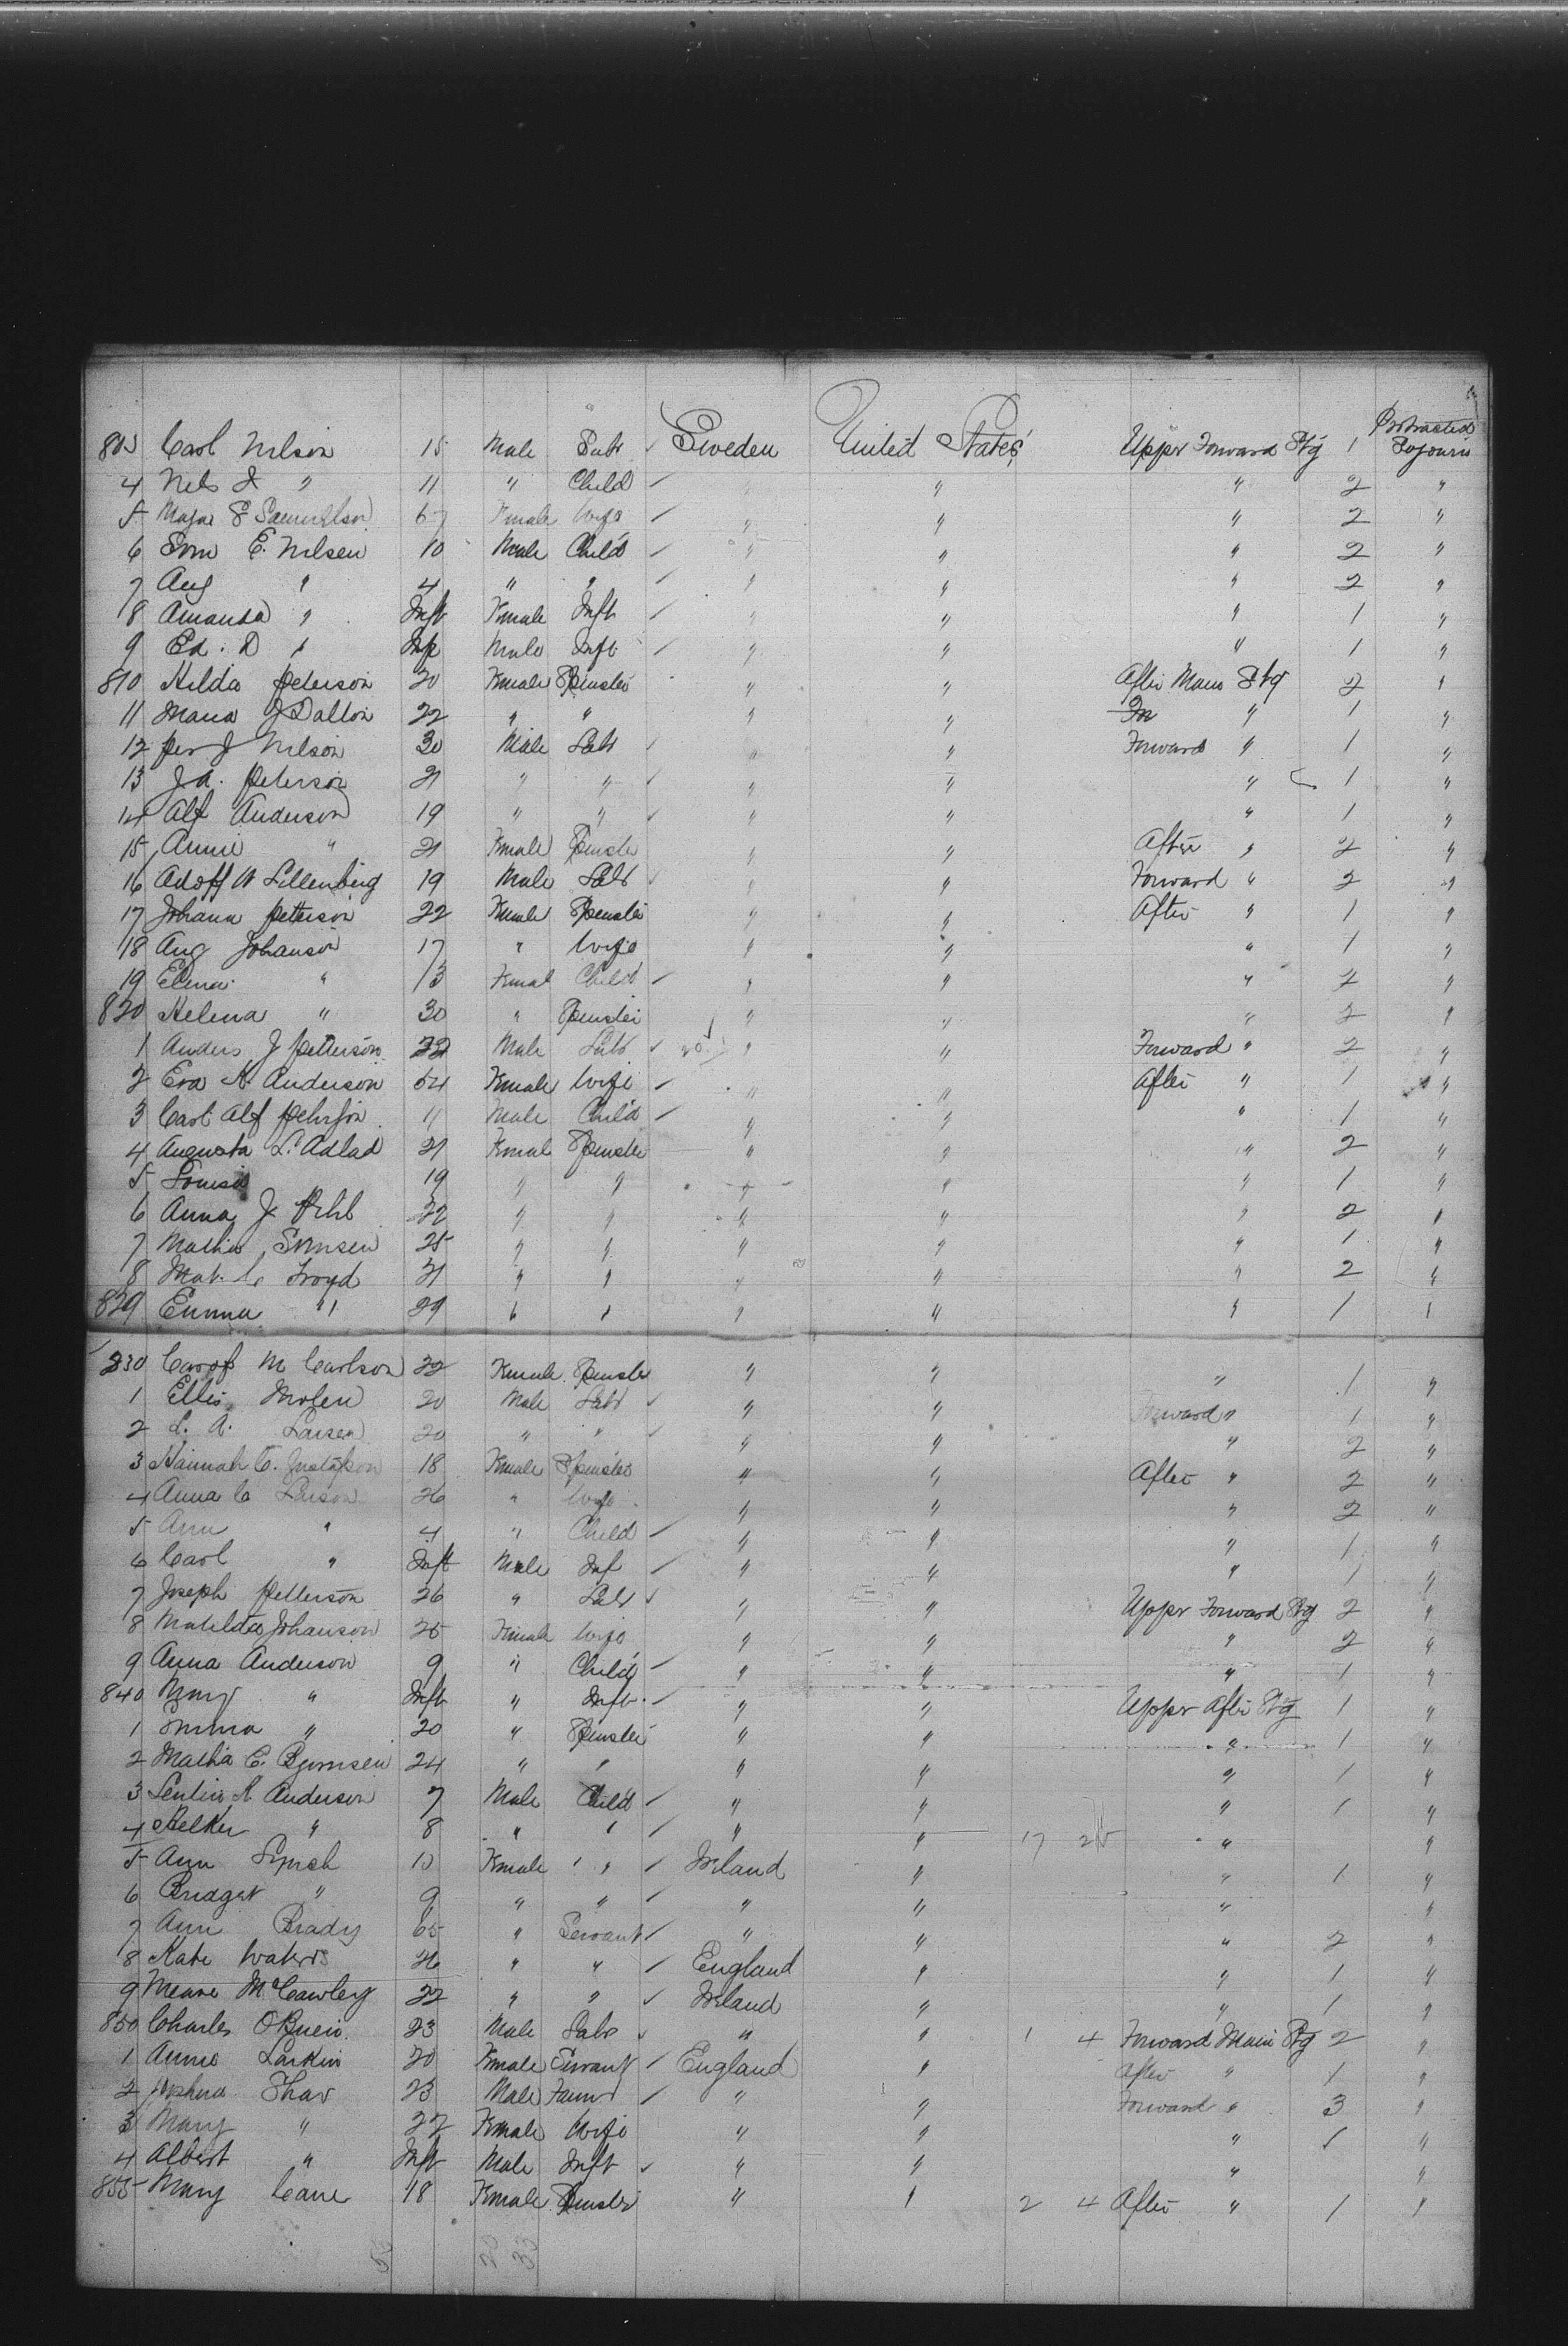 803 Carl Nilson 15 Male Labr ✓ Sweden United States Upper Forward Stg 1 Protracted Sojourn
4 Nels J " 11 " Child ✓ " " " 2 "
5 Maja S Samuelson 67 Female Wife ✓ " " " 2 "
6 Sven E. Nilsen 10 Male Child ✓ " " " 2 "
7 Aug " 4 " " ✓ " " " 2 "
8 Amanda " Inft Female Inft ✓ " " " 1 "
9 Ed. D " Inft Male Inft ✓ " " " 1 "
810 Hilda Peterson 20 Female Spinster " " After Main Stg 2 "
11 Maria J Dallon 22 " " " " " 1 "
12 Per J Nilson 30 Male Labr ✓ " " Forward " 1 "
13 J A. Peterson 21 " " ✓ " " " 1 "
14 Alf Anderson 19 " " ✓ " " " 1 "
15 Annie " 21 Female Spinster " " After " 2 "
16 Adoff W Lillenberg 19 Male Labr ✓ " " Forward " 2 "
17 Johana Petterson 22 Female Spinster " " After " 1 "
18 Aug Johanson 17 " Wife " " " 1 "
19 Elena " 13 Femal Child ✓ " " " 2 "
820 Helena " 30 " Spinster " " " 2 "
1 Anders J Petterson 22 Male Labr ✓ 20 " " Forward " 2 "
2 Eva K. Anderson 54 Female Wife ✓ " " After " 1 "
3 Carl Alf Pehrson 11 Male Child ✓ " " " 1 "
4 Augusta L. Adlad 21 Femal Spinster " " " 2 "
5 Louisa 19 " " " " " 1 "
6 Anna J 22 " " " " " 2 "
7 Mathis Svensen 25 " " " " " 1 "
8 Mat. C Froyd 21 " " " " " 2 "
829 Emma " 29 " " " " " 1 "
830 M Carlson 22 Female Spinster " " " 1 "
1 Ellis Molen 20 Male Labr ✓ " " Forward " 1 "
2 L. A. Larsen 20 " " ✓ " " " 2 "
3 Hannah C. Gustafson 18 Female Spinster " " After " 2 "
4 Anna C Larson 26 " Wife " " " 2 "
5 Ann " 4 " Child ✓ " " " 1 "
6 Carl " Inft Male Inf ✓ " " " 1 "
7 Joseph Petterson 26 " Labr ✓ " " Upper Forward Stg 2 "
8 Matilda Johanson 25 Female Wife " " " 2 "
9 Anna Anderson 9 " Child ✓ " " " 1 "
840 Mary " Inft " Inft ✓ " " Upper After Stg 1 "
1 Emma " 20 " Spinster " " " 1 "
2 Mathia C. Bjornsen 24 " " " " " 1 "
3 K Anderson 7 Male Child ✓ " " " 1 "
4 " 8 " " ✓ " " 17 " "
5 Ann Lynch 10 Female " " ✓ Ireland " " 1 "
6 Bridget " 9 " " ✓ " " " "
7 Ann Brady 65 " Servant ✓ " " " 2 "
8 Kate Waters 26 " " ✓ England " " 1 "
9 McCawley 22 " " ✓ Ireland " " 1 "
850 Charles OBrein 23 Male Labr ✓ " " 1 4 Forward Main Stg 2 "
1 Annie Larkin 20 Female Servant ✓ England " After " 1 "
2 Joshua Shaw 23 Male Farmr ✓ " " Forward " 3 "
3 Mary " 22 Female Wife " " " ✓ "
4 Albert " Inft Male Inft ✓ " " " "
855 Mary Cane 18 Female Spinster " " 2 4 After " 1 "
20
33